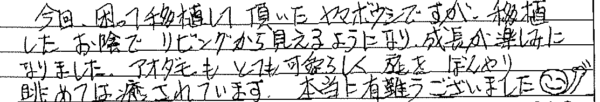 今回、困って移植して頂いたヤマボウシですが、移植
したお陰でリビングから見えるようになり、成長が楽しみに
なりました。アオダモもとても可愛らしく 庭を ぼんやり
眺めては癒されています。本当に有難うございました